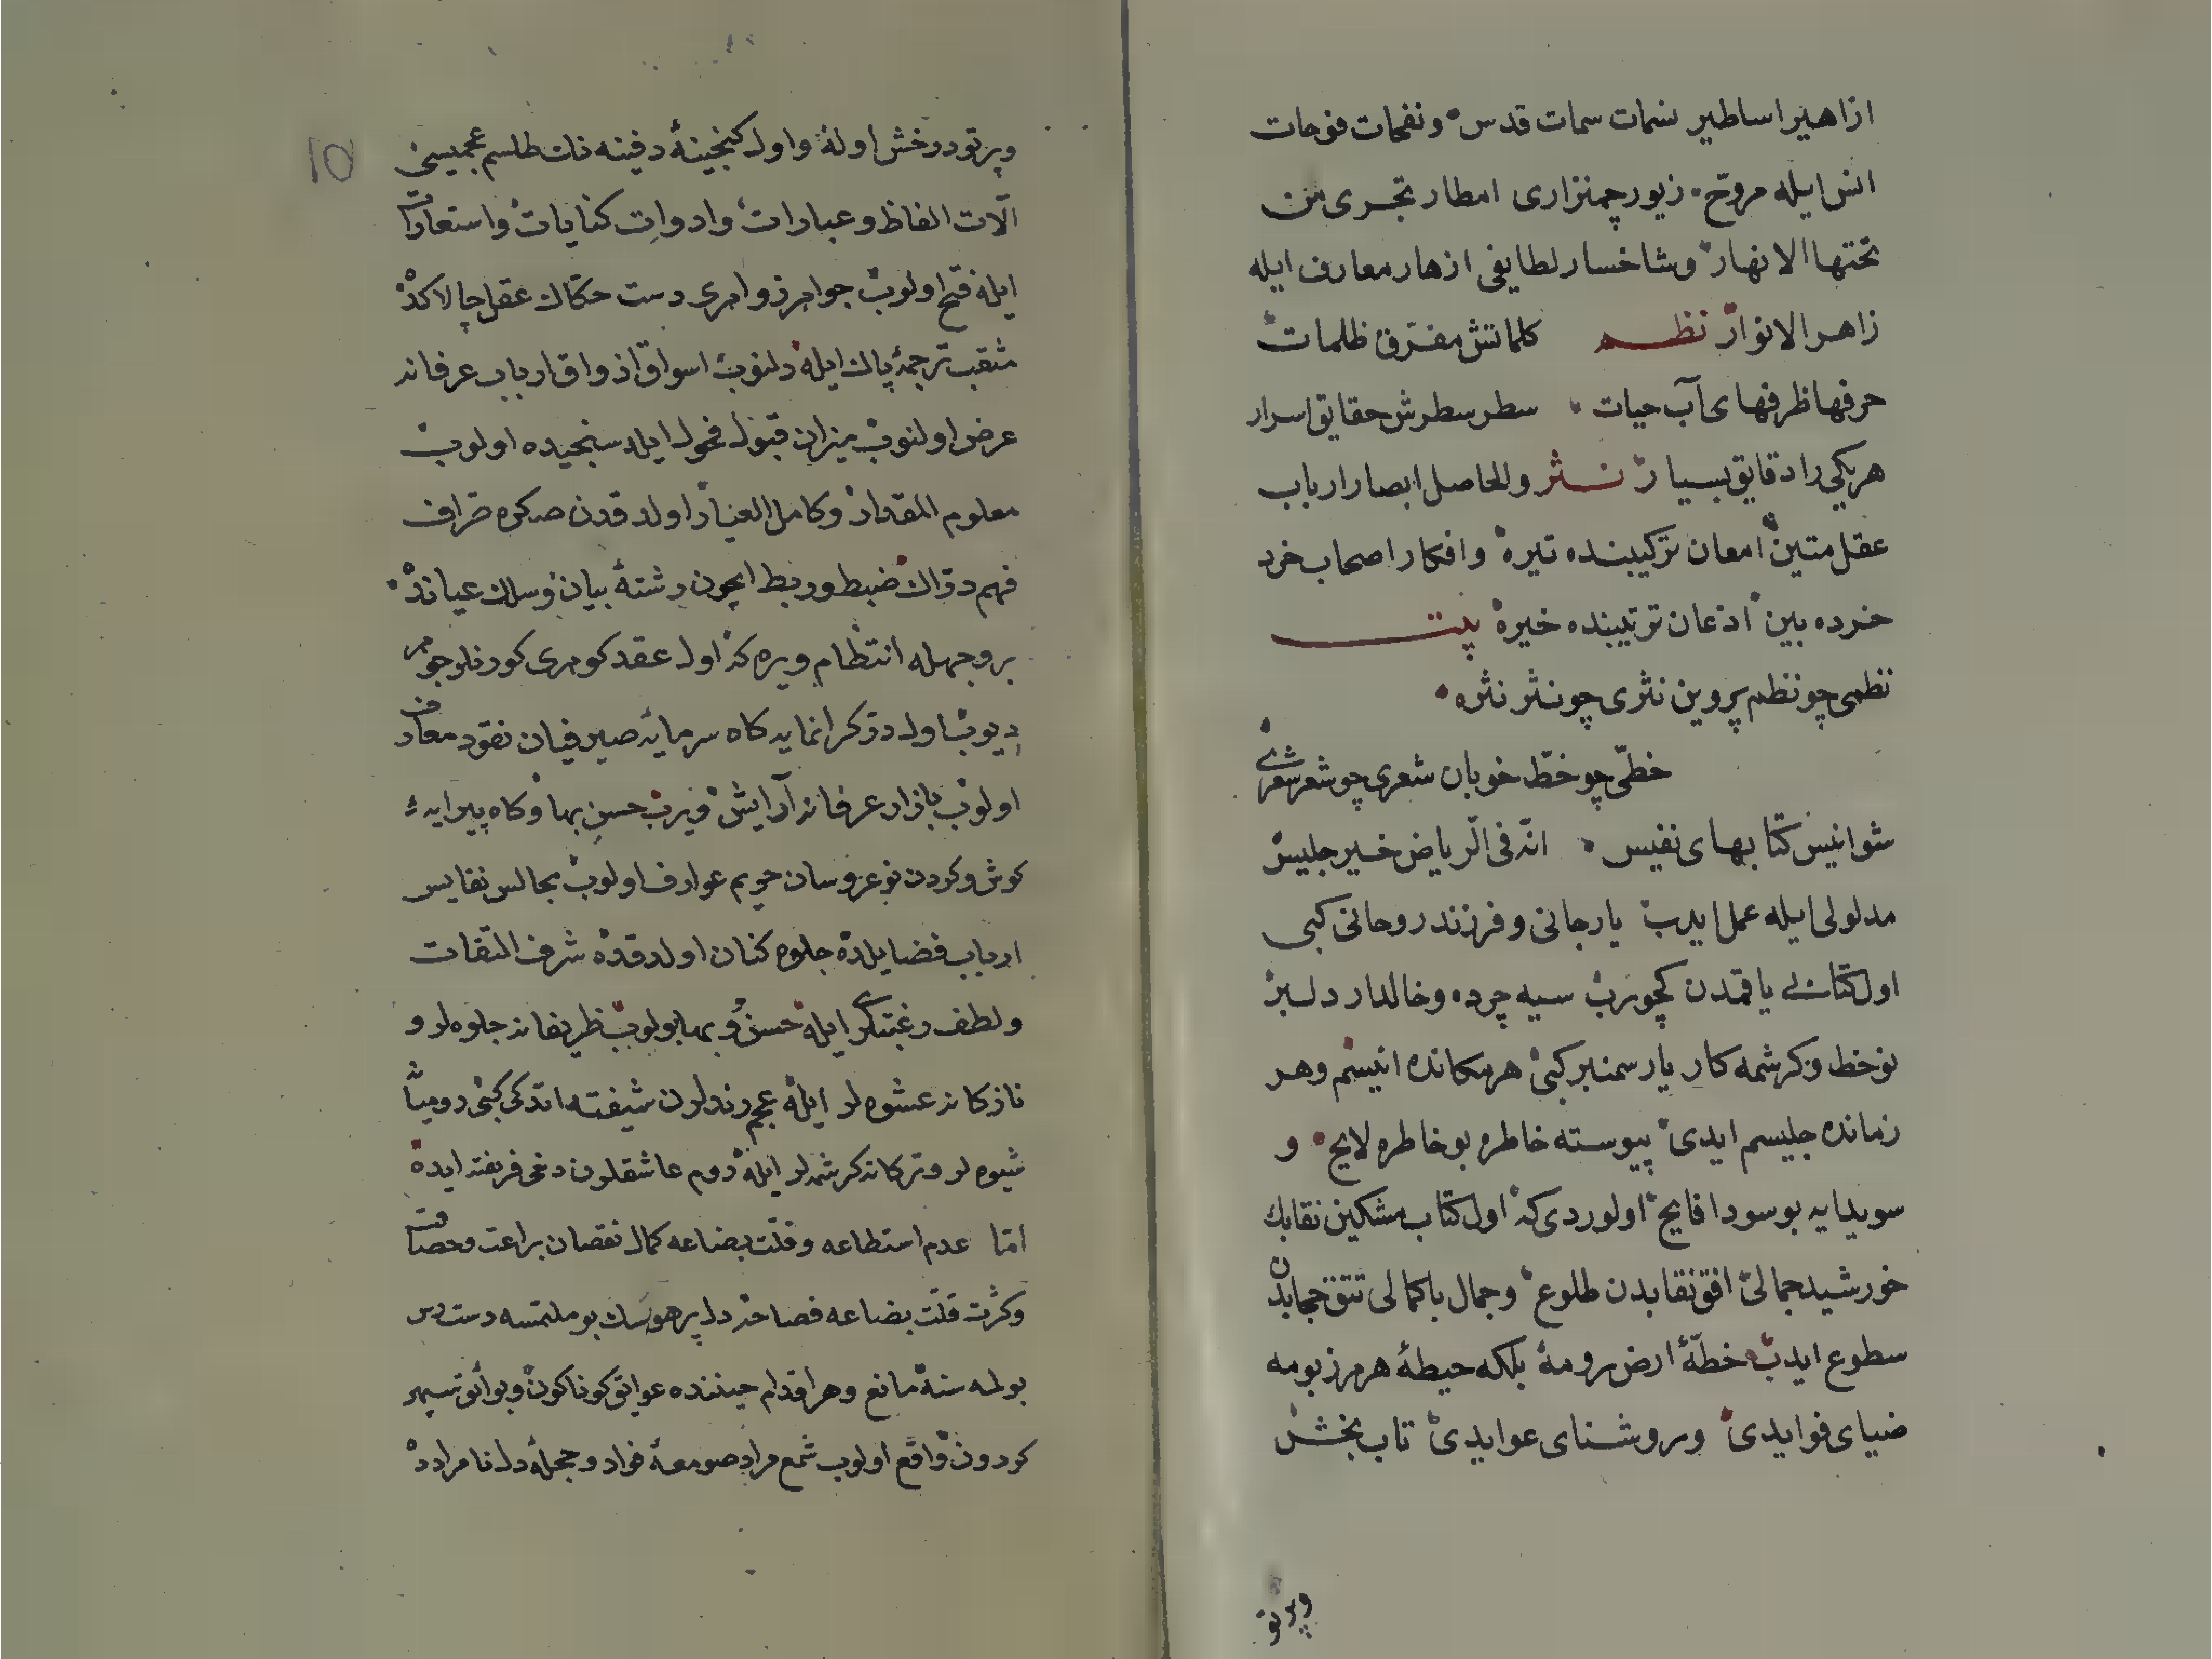 ازاهیر اساطیر نسمات سمات قدس و نفحات فوحات
انس ایله مروّح زیور چمنزاری امطار تجری من
تحتها الانهار و شاخسار لطایفی ازهار معارف ایله
زاهر الانوار نظم کلماتش مفرّق ظلمات
حرفها ظرفهای آب حیات سطر سطرش حقایق اسرار
هر یکی را دقایق بسیار نثر والحاصل ابصار ارباب
عقل متین امعان ترکیبنده تیره و افکار اصحاب خرد
خرده بین اذعان ترتیبنده خیره بیت
نظمی چو نظم پروین نثری چو نثر نثره
خطّی چو خطّ خوبان شعری چو شعر شعری
شو انیس کتابهای نفیس انّه فی الریاض خیر جلیس
مدلولی ایله عمل ایدب یار جانی و فرزند روحانی کبی
اول کتابی یانمدن کچورب سیه چرده و خالدار دلبر
نوخط و کرشمه کار یار سمنبر کبی هر مکانده انیسم و هر
زمانده جلیسم ایدی پیوسته خاطره بو خاطره لایح و
سویدایه بو سودا فایح اولوردی که اول کتاب مشکین نقابك
خورشید جمالی افق نقابدن طلوع و جمال باکمالی تتق حجابدن
سطوع ایدب خطّهٔ ارض رومه بلکه حیطهٔ هر مرز بومه
ضیای فوایدی و روشنای عوایدی تاب بخش
وپرتو
وپرتو درخش اوله و اول کنجینهٔ دفینه نك طلسم عجمیسی
آلات الفاظ و عبارات و ادوات کنایات و استعارات
ایله فتح اولوب جواهر زواهری دست حکاك عقل چالاکده
مثقب ترجمهٔ پاك ایله دلنوب اسواق اذواق ارباب عرفانه
عرض اولنوب میزان قبول فحول ایله سنجیده اولوب
معلوم المقدار و کامل العیار اولدقدن صکره صراف
فهم درّاك ضبط و ربط ایچون رشتهٔ بیان و سلك عیانده
بر وجهله انتظام ویره که اول عقد کوهری کورنلر جوهر
دیوب اول درّ کرانمایه کاه سرمایهٔ صیرفیان نقود معارف
اولوب بازار عرفانه آرایش ویرب حسن بها و کاه پیرایهٔ
کوش و کردن نوعروسان حریم عوارف اولوب مجالس نفایس
ارباب فضایلده جلوه کنان اولدقده شرف التفات
ولطف رغبتلری ایله حسن و بها بولوب ظریفانه جلوه لر و
نازکانه عشوه لر ایله عجم رندلرن شیفته اتدکی کبی رومیانه
شیوه لر و ترکانه کرشمه لر ایله روم عاشقلرن دخی فریفته ایده
امّا عدم استطاعه و قلّت بضاعه کمال نقصان براعت و حصافت
و کثرت قلّت بضاعه فصاحت دل پر هوسك بو ملتمسه دست رس
بولمه سنه مانع و هر اقدام حیننده عوایق کوناکون و بوائق سپهر
کردون واقع اولوب شمع مراد صومعهٔ فواد و حجلهٔ دل نامرادده